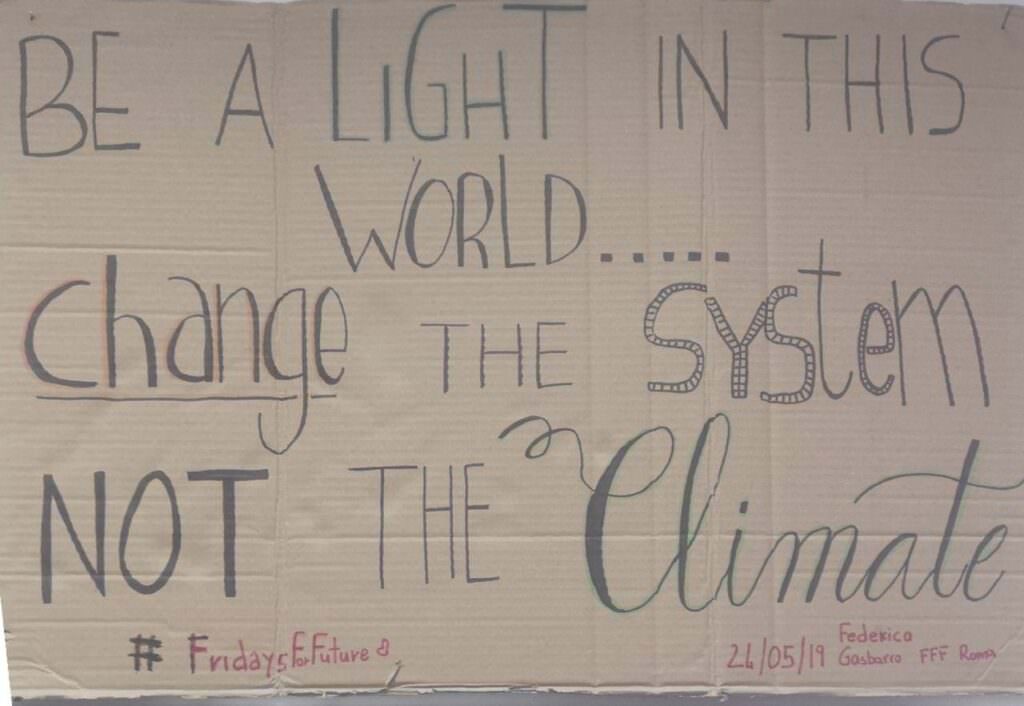 BE A LIGHT IN THIS
WORLD......
change THE SYStem
NOT THE Climate
# FridaysForFuture
24/05/19 Federica
Gasbarro FFF Roma